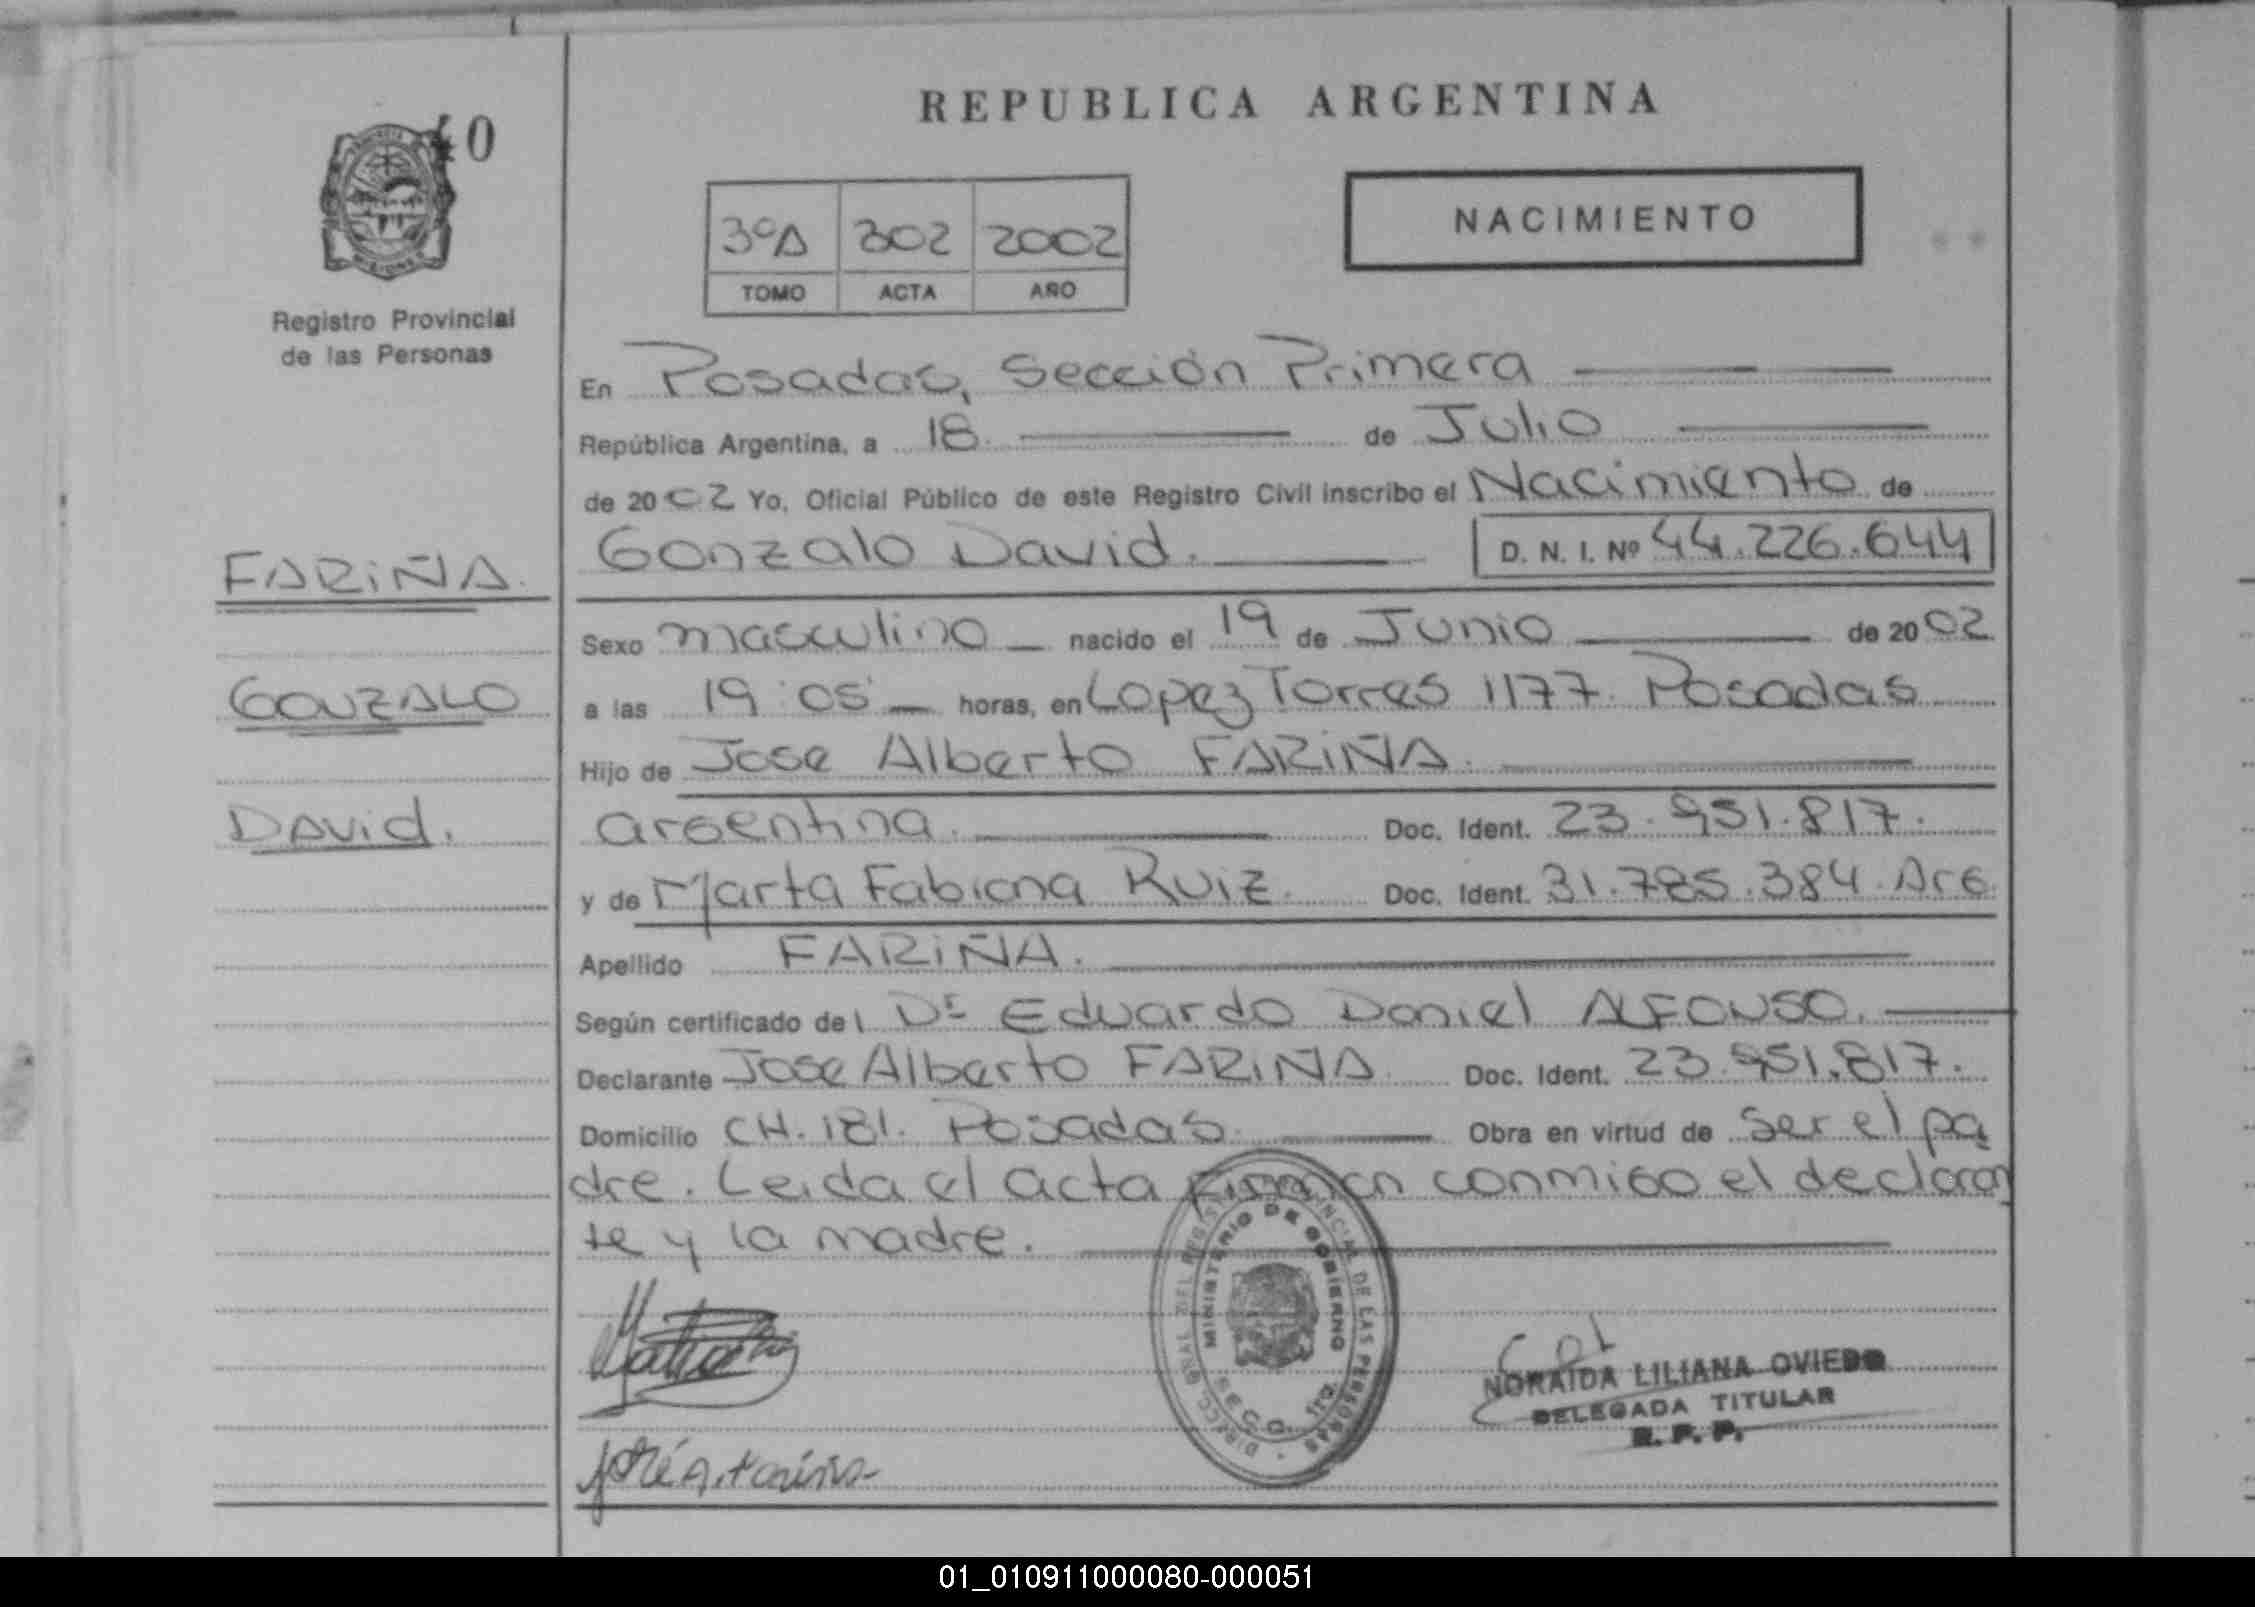 40
MISIONES
Registro Provincial
de las Personas
FARIÑA.
GONZALO
DAVid.
REPUBLICA ARGENTINA
3ºA 302 2002
TOMO ACTA AÑO
NACIMIENTO
En Posadas, Sección Primera
República Argentina, a 18 de Julio
de 2002 Yo, Oficial Público de este Registro Civil inscribo el Nacimiento de
Gonzalo David. D. N. I. Nº 44.226.644
Sexo masculino nacido el 19 de Junio de 2002
a las 19:05 horas, en Lopez Torres 1177. Posadas
Hijo de Jose Alberto FARIÑA.
argentina. Doc. Ident. 23.951.817.
y de Marta Fabiana Ruiz. Doc. Ident. 31.785.384. Arg.
Apellido FARIÑA.
Según certificado del Dr Eduardo Daniel ALFONSO.
Declarante Jose Alberto FARIÑA. Doc. Ident. 23.951.817.
Domicilio CH. 181. Posadas. Obra en virtud de ser el pa
dre. Leida el acta firman conmigo el declaran
te y la madre.
DIRECC. GRAL DEL REGISTRO PROVINCIAL DE LAS PERSONAS
MINISTERIO DE GOBIERNO
NORAIDA LILIANA OVIEDO
DELEGADA TITULAR
R. P. P.
José A. Fariña
01_010911000080-000051